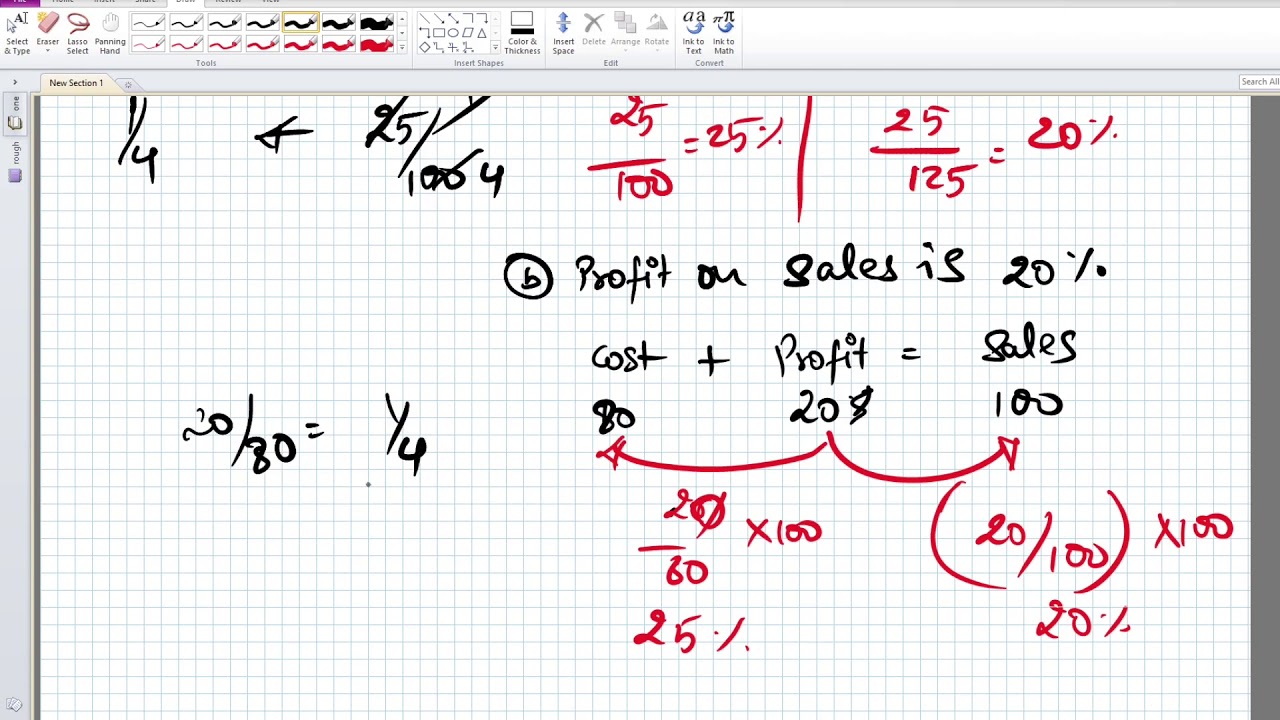 File Home Insert Share Draw Review View
Select & Type
Eraser
Lasso Select
Panning Hand
Tools
Insert Shapes
Color & Thickness
Insert Space
Delete
Arrange
Rotate
Edit
Ink to Text
Ink to Math
Convert
New Section 1
Search All
rough
1/4 ← 25/100 4
25/100 = 25%
25/125 = 20%
(b) Profit on sales is 20%.
cost + Profit = sales
80 20 100
20/80 = 1/4
20/80 ×100
(20/100) ×100
25%
20%